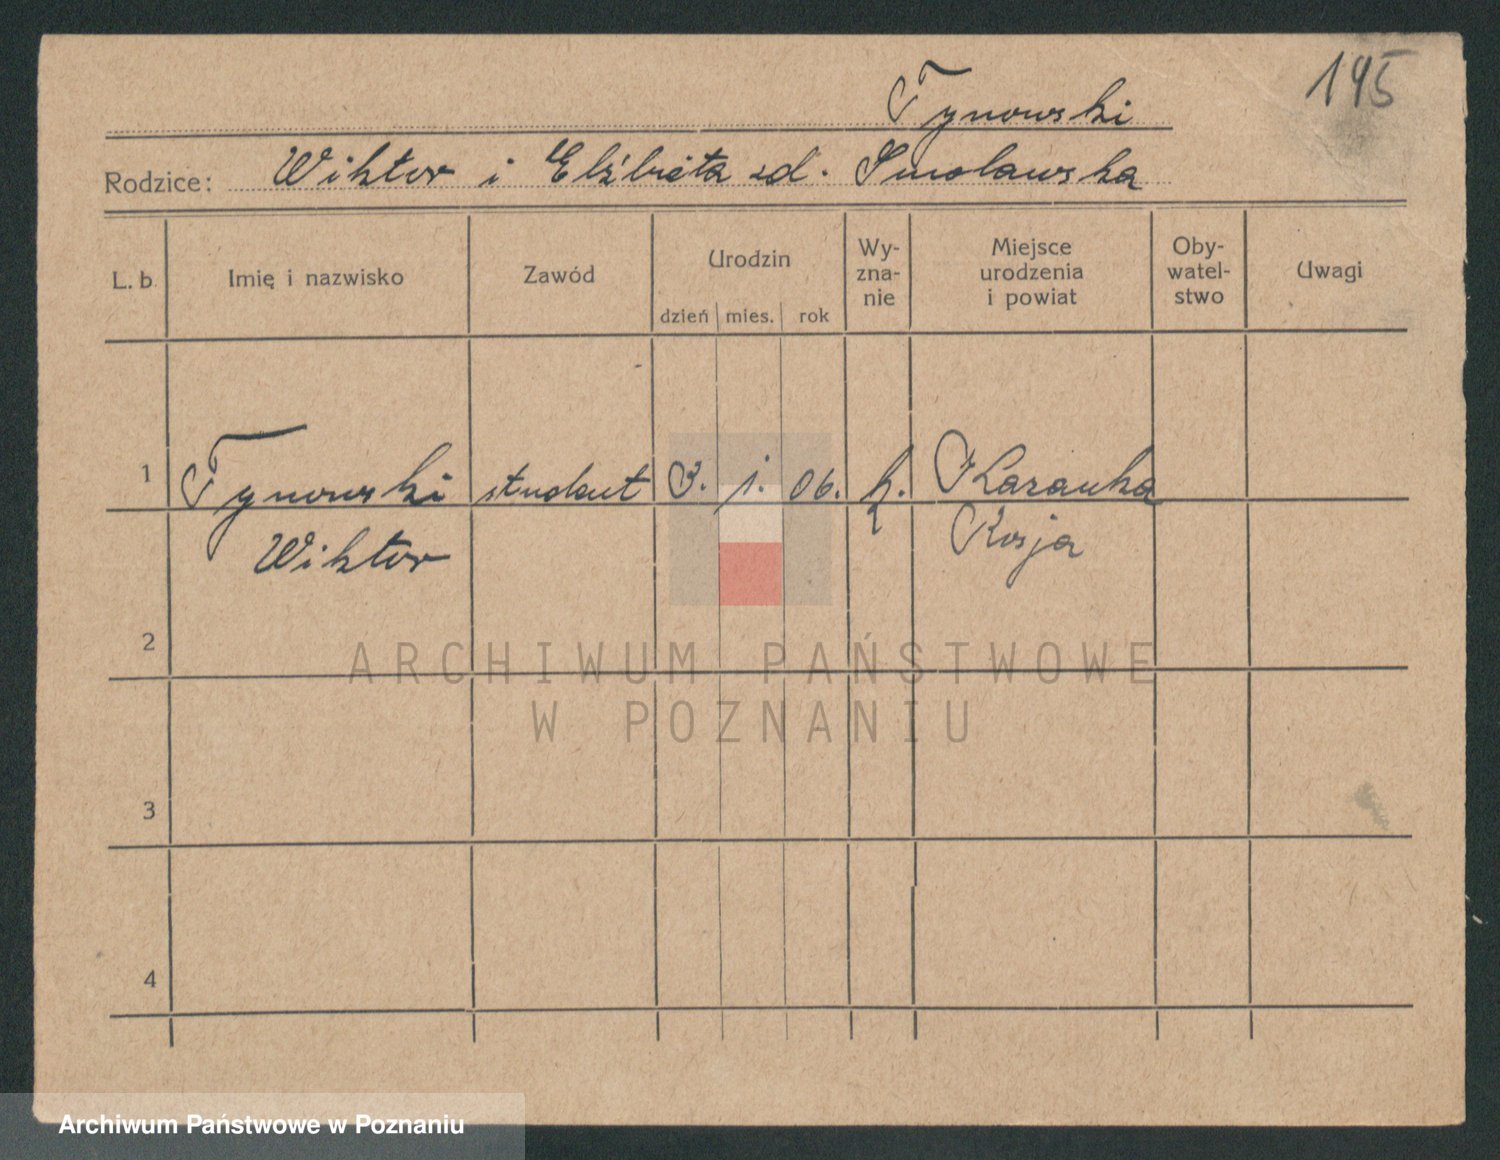 195
Tynowski
Rodzice: Wiktor i Elżbieta zd. Smolawska
L. b. Imię i nazwisko Zawód Urodzin dzień mies. rok Wy-zna-nie Miejsce urodzenia i powiat Oby-watel-stwo Uwagi
1 Tynowski student 3. 1. 06. k. Kazanka
Wiktor Rosja
2
3
4
ARCHIWUM PAŃSTWOWE
W POZNANIU
Archiwum Państwowe w Poznaniu